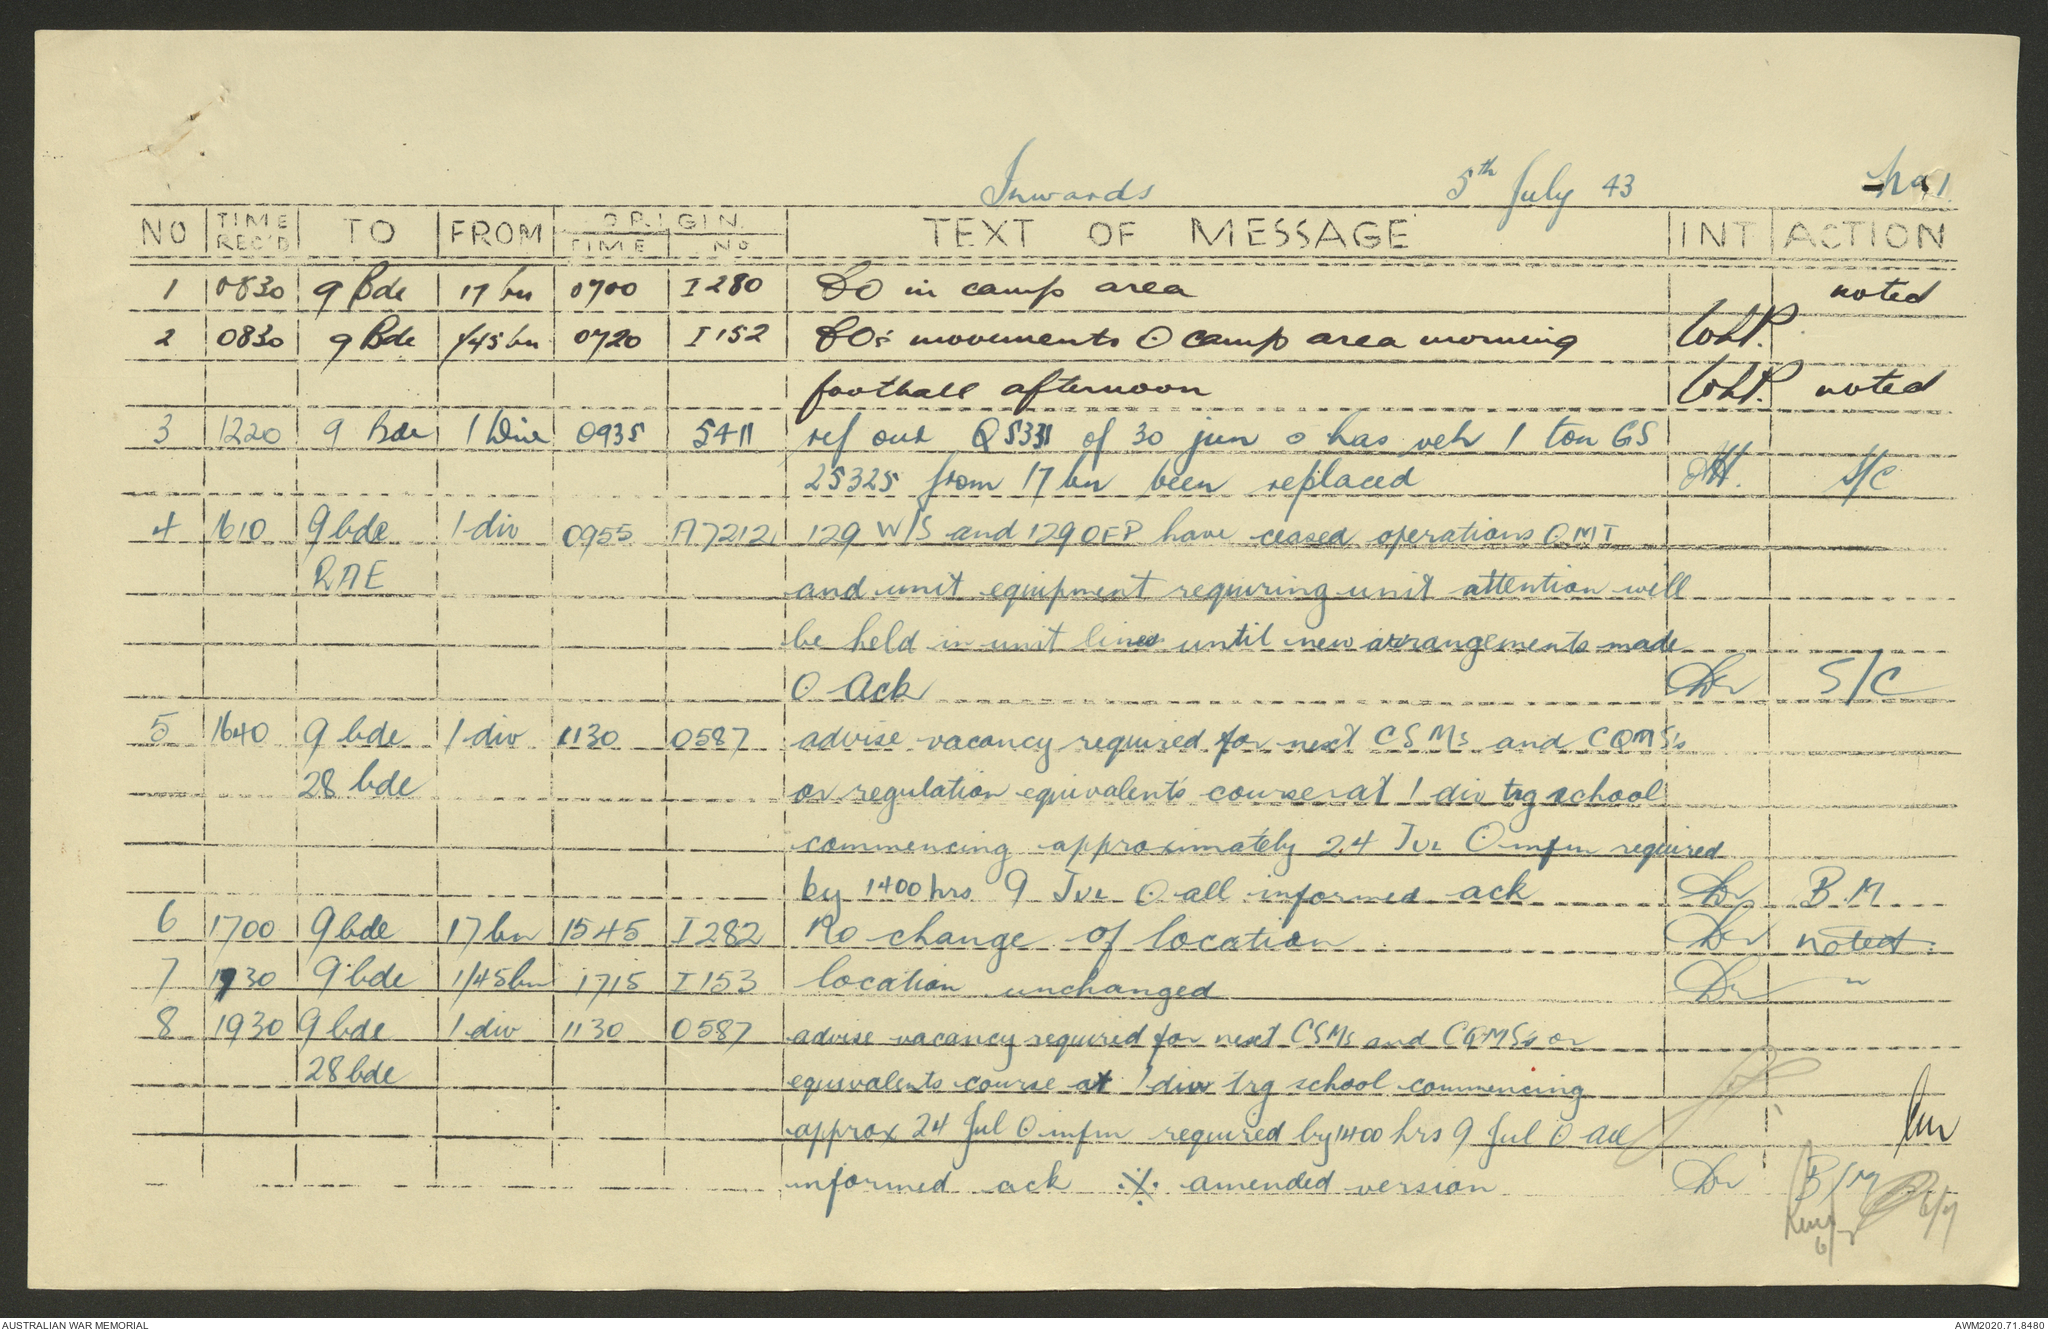 Inwards 5th July 43 No 1
NO TIME REC'D TO FROM ORIGIN TIME NO TEXT OF MESSAGE INT ACTION
1 0830 9 Bde 17 bn 0700 I 280 CO in camp area noted
2 0830 9 Bde 1/45 bn 0720 I 152 CO's movements O camp area morning WLP.
football afternoon WLP. noted
3 1220 9 Bde 1 Div 0935 5411 ref our Q5331 of 30 jun o has veh 1 ton GS
25325 from 17 bn been replaced S/C
4 1610 9 bde 1 div 0955 A7212 129 W/S and 129 OFP have ceased operations O MT
RAE and unit equipment requiring unit attention will
be held in unit lines until new arrangements made
O Ack Dr S/C
5 1640 9 bde 1 div 1130 0587 advise vacancy required for next CSMs and CQMS's
28 bde or regulation equivalents course at 1 div trg school
commencing approximately 24 Jul O mfm required
by 1400 hrs 9 Jul O all informed ack Dr B.M
6 1700 9 bde 17 bn 1545 I 282 No change of location Dr noted.
7 1730 9 bde 1/45 bn 1715 I 153 location unchanged Dr "
8 1930 9 bde 1 div 1130 0587 advise vacancy required for next CSMs and CQMSs or
28 bde equivalents course at 1 div trg school commencing
approx 24 Jul O mfm required by 1400 hrs 9 Jul O all
informed ack ·/. amended version Dr B/M
6/7
6/7
AUSTRALIAN WAR MEMORIAL AWM2020.71.8480